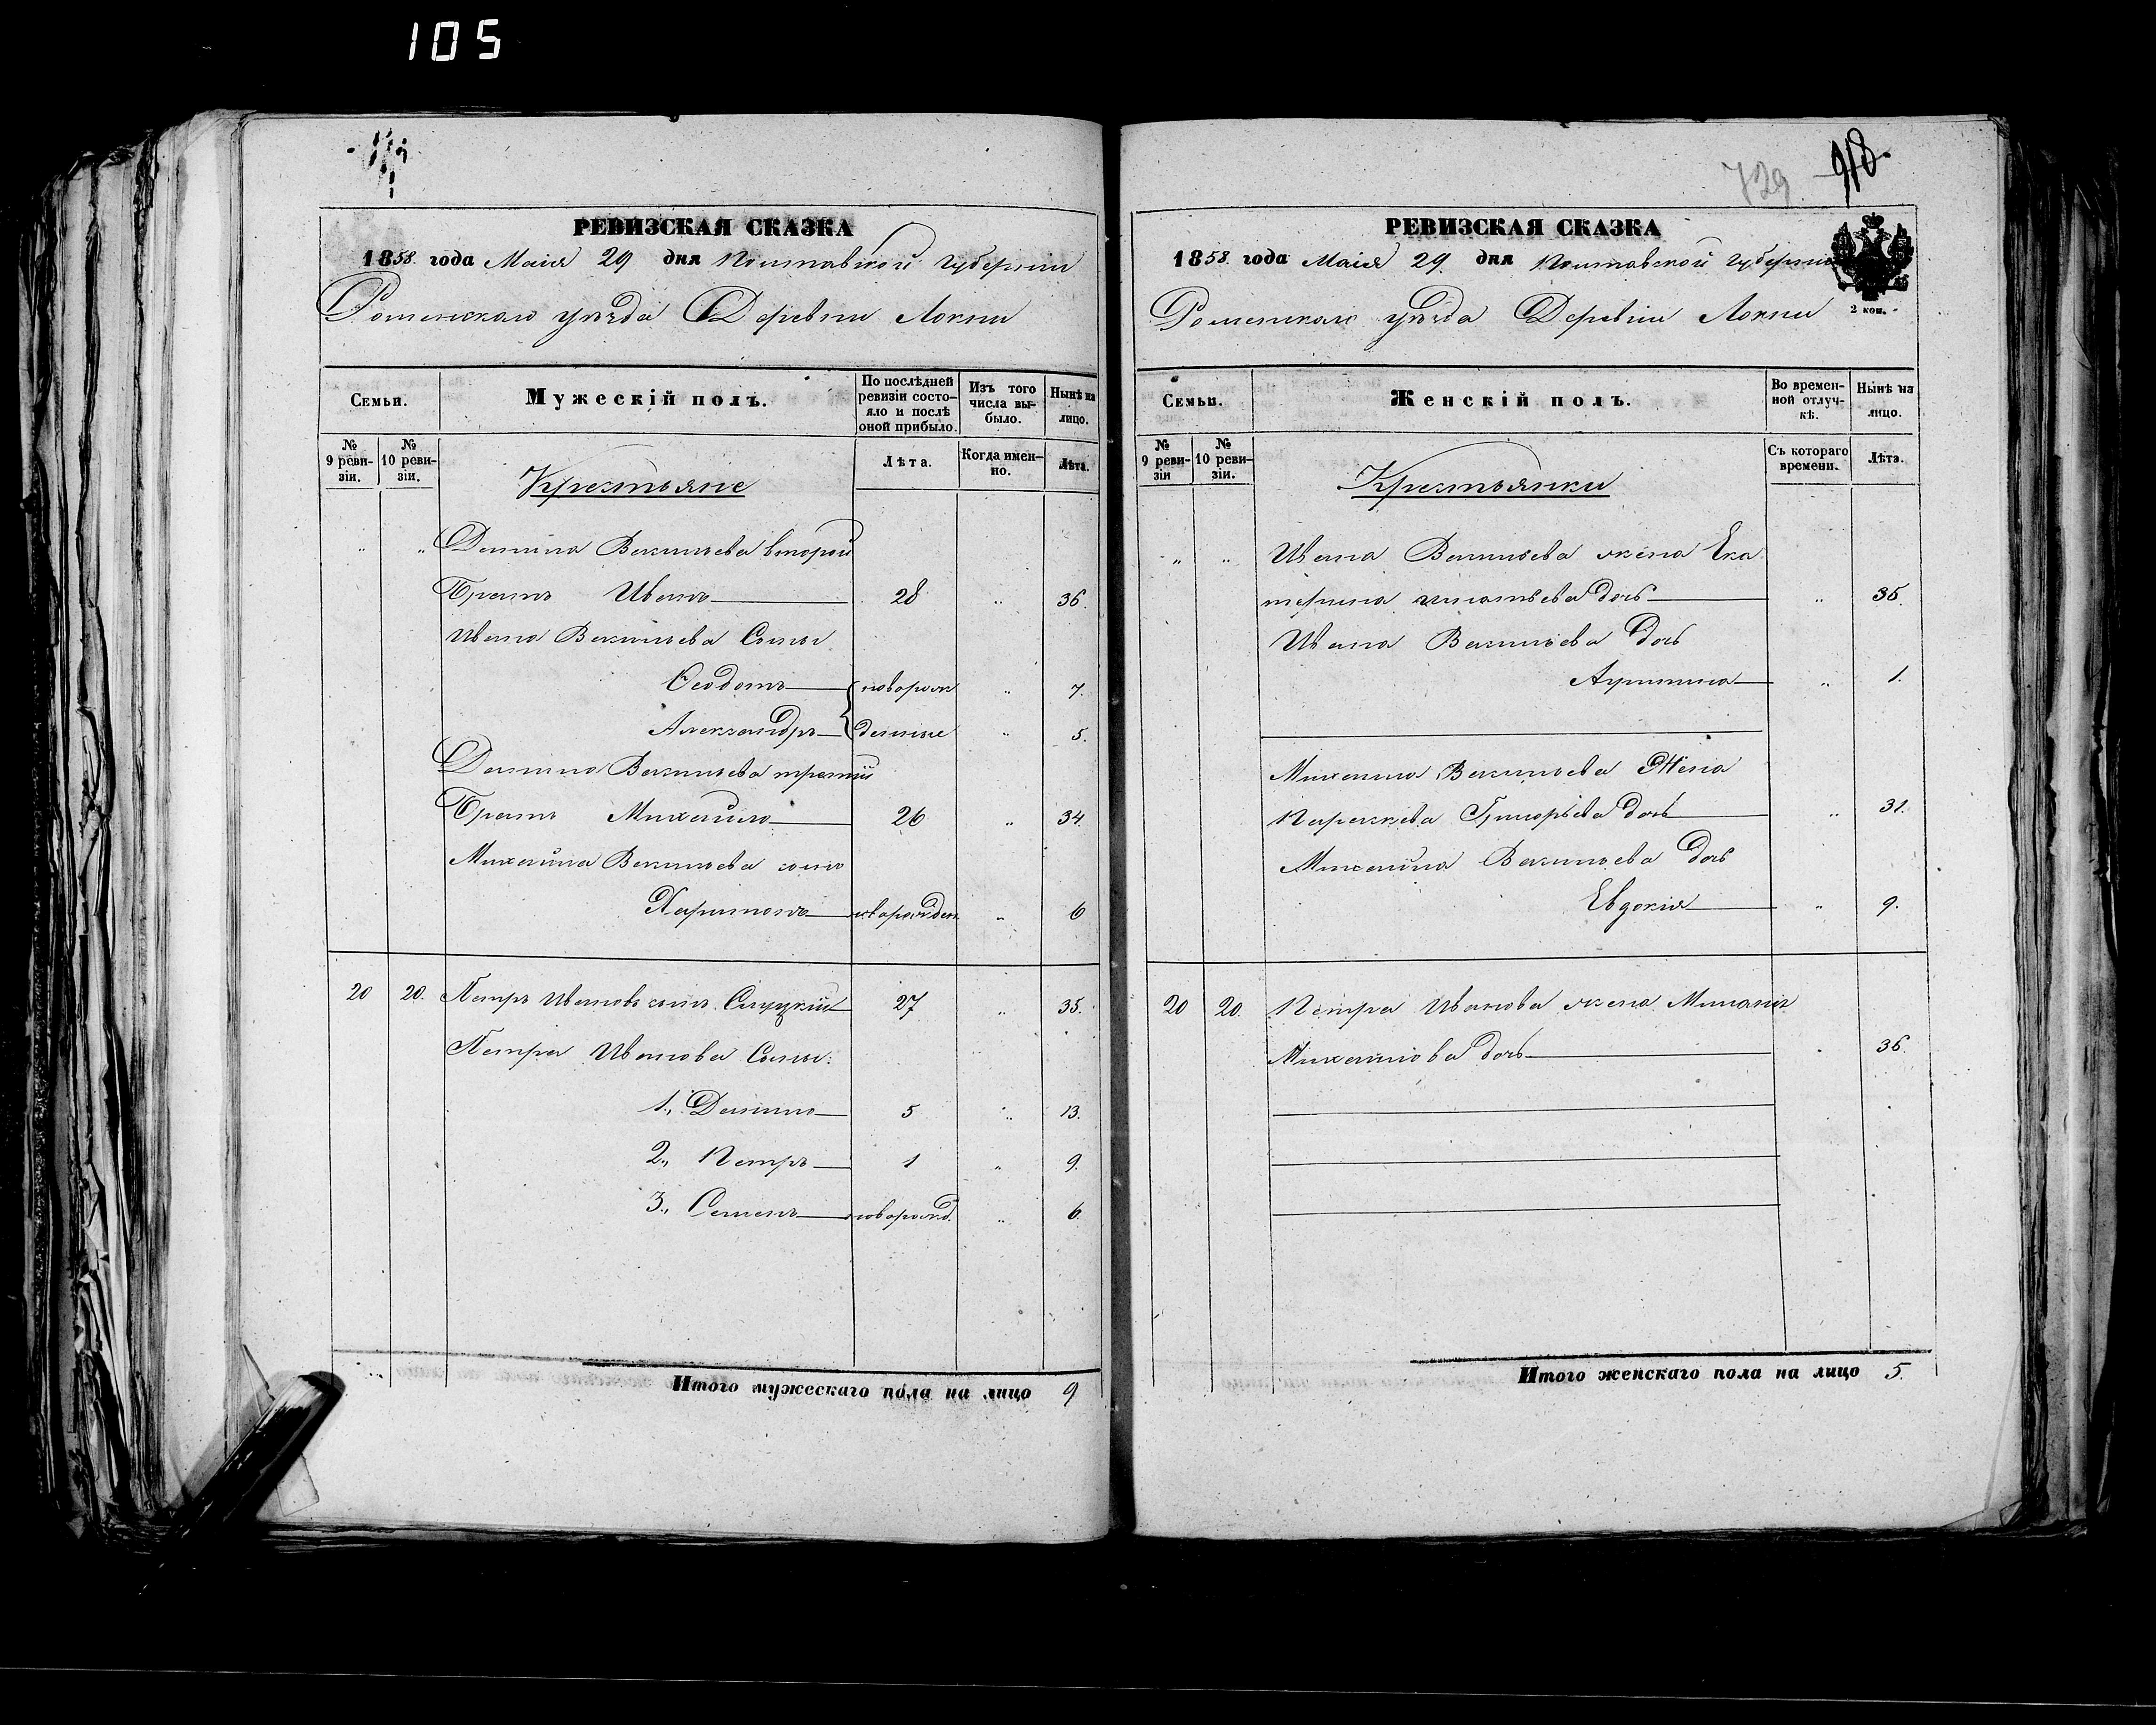 105
РЕВИЗСКАЯ СКАЗКА
1858. года Маія 29 дня Полтавской Губерніи
Роменскаго уѣзда Деревни Локни
Семьи.
Мужескій полъ.
По послѣдней ревизіи состояло и послѣ оной прибыло.
Изъ того числа выбыло.
Нынѣ на лицо.
№ 9 ревизіи.
№ 10 ревизіи.
Крестьяне
Лѣта.
Когда именно.
Лѣта.
" " Данила Васильева второй
Братъ Иванъ 28 " 36.
Ивана Васильева Сыны
Ѳеодотъ новорож " 7.
Александръ денные " 5.
Данила Васильева третій
Братъ Михайло 26 " 34.
Михайла Васильева сынъ
Харитонъ новорожден. " 6
20 20. Петръ Ивановъ сынъ 27 " 35.
Петра Иванова Сыны:
1., Данило 5 " 13.
2., Петръ 1 " 9.
3., Семенъ новорожд. " 6.
Итого мужескаго пола на лицо 9
729 918
РЕВИЗСКАЯ СКАЗКА
1858. года Маія 29. дня Полтавской Губерніи
Роменскаго уѣзда Деревни Локни
2 коп.
Семьи.
Женскій полъ.
Во временной отлучкѣ.
Нынѣ на лицо.
№ 9 ревизіи
№ 10 ревизіи.
Крестьянки
Съ котораго времени.
Лѣта.
" " Ивана Васильева жена Ека
терина Игнатьева дочь " 35.
Ивана Васильева дочь
" 1.
Михайла Васильева Жена
Параскева Григорьева дочь " 31.
Михайла Васильева дочь
Евдокія " 9.
20 20. Петра Иванова жена
Михайлова дочь " 36.
Итого женскаго пола на лицо 5.